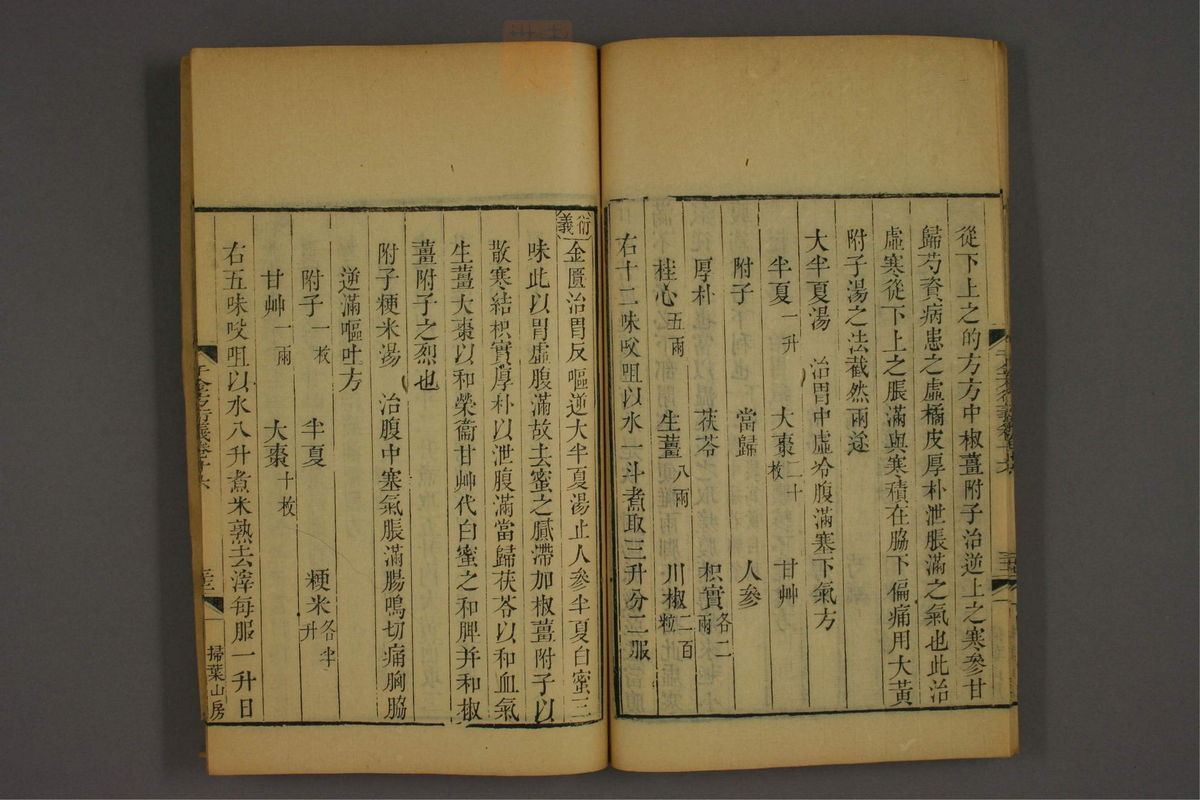 從下上之的方方中椒薑附子治逆上之寒參甘
歸芍資病患之虛橘皮厚朴泄脹滿之氣也此治
虛寒從下上之脹滿與寒積在脇下偏痛用大黃
附子湯之法截然兩途
大半夏湯 治胃中虛冷腹滿塞下氣方
半夏一升 大棗二十枚 甘艸
附子 當歸 人參
厚朴 茯苓 枳實各二兩
桂心五兩 生薑八兩 川椒二百粒
右十二味㕮咀以水一斗煮取三升分二服
衍義 金匱治胃反嘔逆大半夏湯止人參半夏白蜜三
味此以胃虛腹滿故去蜜之膩滯加椒薑附子以
散寒結枳實厚朴以泄腹滿當歸茯苓以和血氣
生薑大棗以和榮衞甘艸代白蜜之和脾并和椒
薑附子之烈也
附子粳米湯 治腹中寒氣脹滿腸鳴切痛胸脇
逆滿嘔吐方
附子一枚 半夏 粳米各半升
甘艸一兩 大棗十枚
右五味㕮咀以水八升煮米熟去滓每服一升日
千金方衍義卷十六
掃葉山房